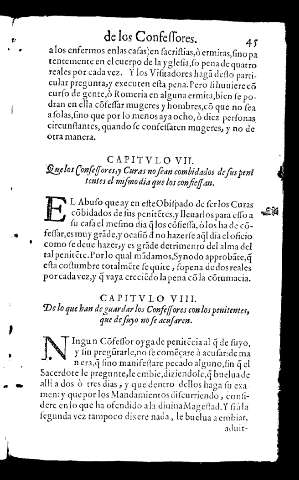 de los Confessores. 45
a los enfermos en las casas; en sacristias, ò ermiras, sino pa
tentemente en el cuerpo de la yglesia, so pena de quatro
reales por cada vez. Y los Visitadores hagã desto parti-
cular pregunta, y executen esta pena. Pero si huuiere cõ
curso de gente, ò Romeria en alguna ermita, bien se po
dran en ella cõfessar mugeres y hombres, cõ que no sea
a solas, sino que por lo menos aya ocho, ò diez personas
circunstantes, quando se confessaren mugeres, y no de
otra manera.
CAPITVLO VII.
Que los Confessores, y Curas no sean combidados de sus peni
tentes el mismo dia que los confiessan.
EL Abuso que ay en este Obispado de ser los Curas
cõbidados de sus penitẽtes, y lleuarlos para esso a
su casa el mesmo dia q̃ los cõfiessa, ò los ha de cõ-
fessar, es muy grãde, y ocasiõ d no hazerse aq̃l dia el oficio
como se deue hazer, y es grãde detrimento del alma del
tal penitẽte. Por lo qual mãdamos, Synodo approbãte, q̃
esta costumbre totalmẽte se quite, so pena de dos reales
por cada vez, y q̃ vaya creciẽdo la pena cõ la cõtumacia.
CAPITVLO VIII.
De lo que han de guardar los Confessores con los penitentes,
que de suyo no se acusaren.
NIngun Cõfessor oyga de penitẽcia al q̃ de suyo,
y sin pregũtarle, no se comẽçare à acusar: de ma
nera, q̃ sino manifestare pecado alguno, sin q̃ el
Sacerdote le pregunte, le embie, diziendole, q̃ buelua de
alli a dos ò tres dias, y que dentro dellos haga su exa
men: y que por los Mandamientos discurriendo, consi-
dere en lo que ha ofendido a la diuina Magestad. Y si a la
segunda vez tampoco dixere nada, le buelua a embiar,
aduir-